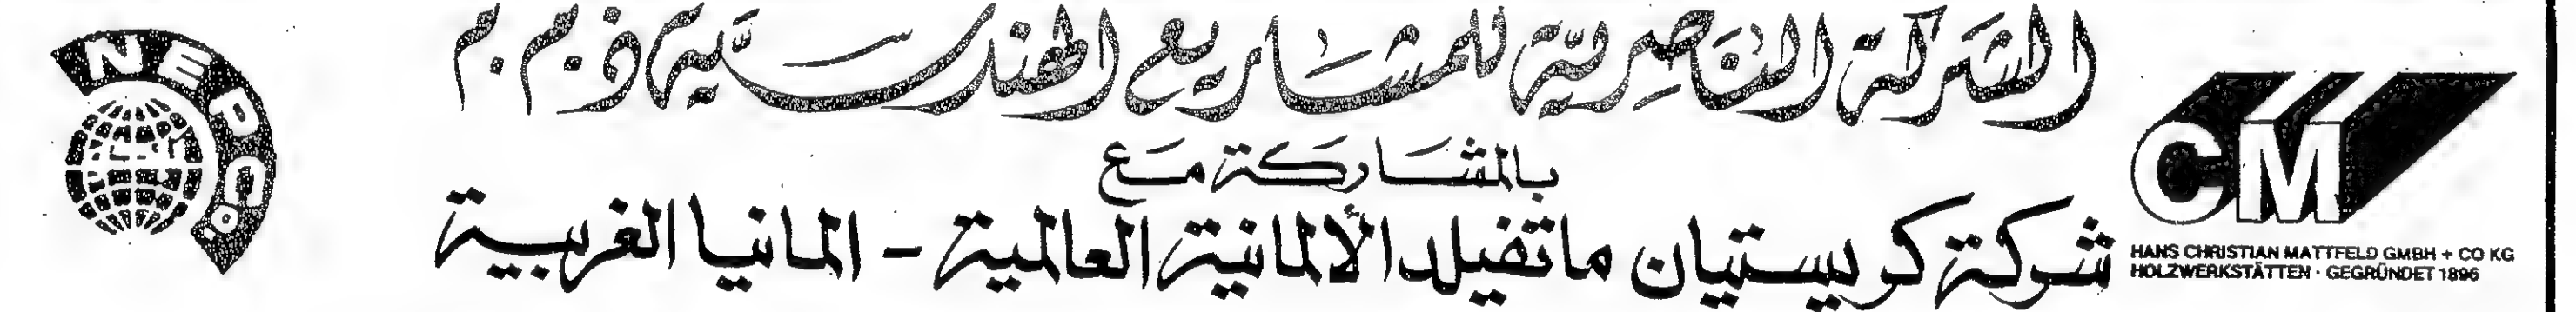 الشركة الناصرية للمشاريع الهندسية ذ.م.م
بالمشاركة مع
شركة كريستيان ماتفيلد الألمانية العالمية - المانيا الغربية
NEPCO.
CM
HANS CHRISTIAN MATTFELD GMBH + CO KG
HOLZWERKSTÄTTEN · GEGRÜNDET 1896